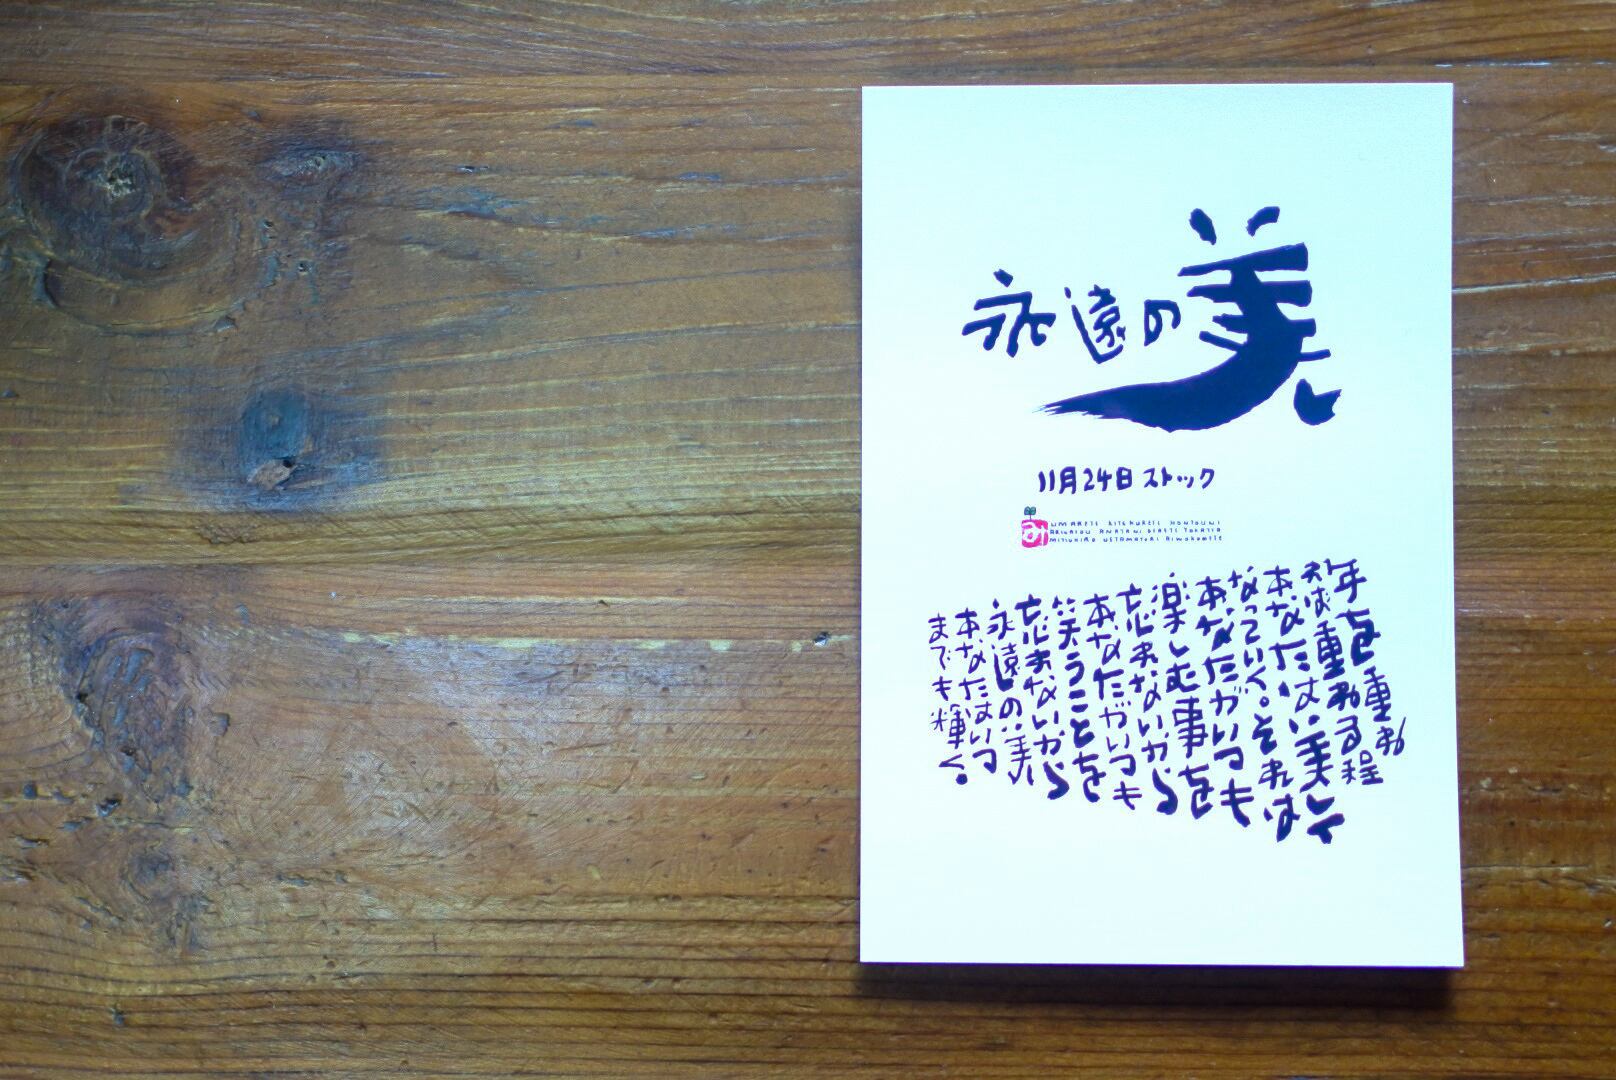 永遠の美
11月24日 ストック
み
UMARETE KITEKURETE HONTOUNI
ARIGATOU ANATANI DEAETE YOKATTA
年を重ね
れば重ねる程
あなたは美しく
なっていく。それは
あなたがいつも
楽しむ事を
忘れないから
あなたがいつも
笑うことを
忘れないから
永遠の美
あなたはいつ
までも輝く。